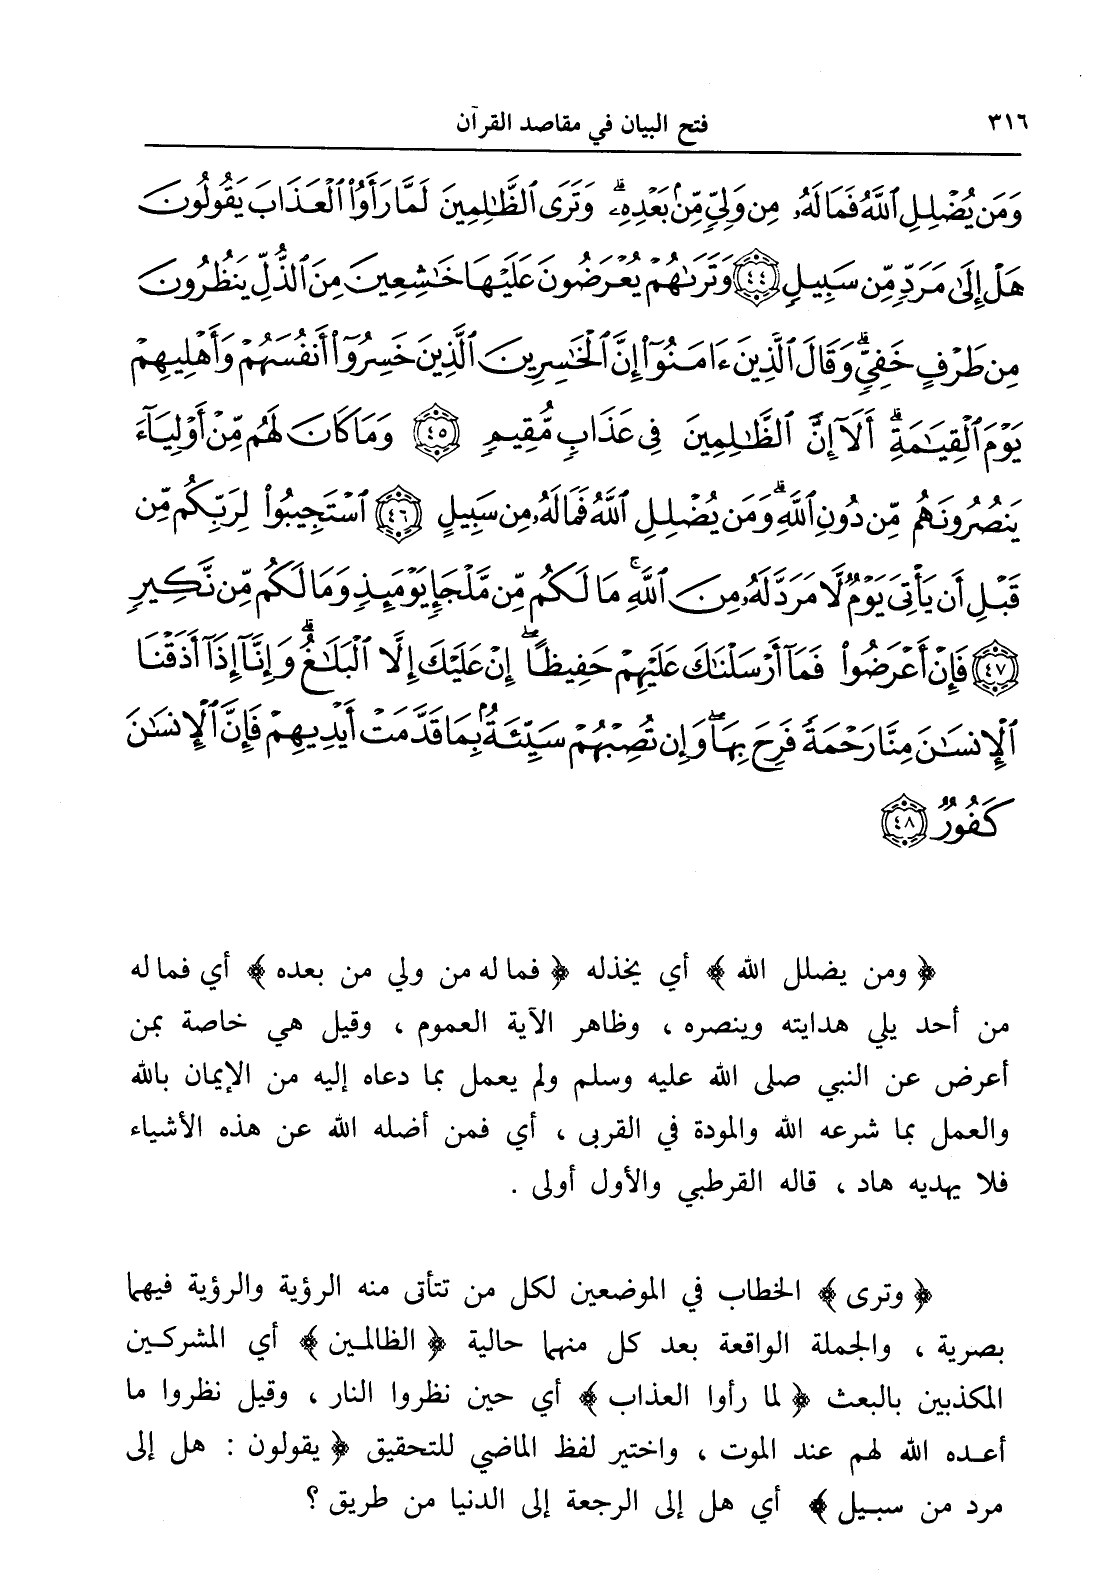 ٣١٦ فتح البيان في مقاصد القرآن
وَمَن يُضْلِلِ ٱللَّهُ فَمَا لَهُۥ مِن وَلِيٍّ مِّنۢ بَعْدِهِۦۗ وَتَرَى ٱلظَّٰلِمِينَ لَمَّا رَأَوُا۟ ٱلْعَذَابَ يَقُولُونَ
هَلْ إِلَىٰ مَرَدٍّ مِّن سَبِيلٍ ٤٤ وَتَرَىٰهُمْ يُعْرَضُونَ عَلَيْهَا خَٰشِعِينَ مِنَ ٱلذُّلِّ يَنظُرُونَ
مِن طَرْفٍ خَفِيٍّۗ وَقَالَ ٱلَّذِينَ ءَامَنُوٓا۟ إِنَّ ٱلْخَٰسِرِينَ ٱلَّذِينَ خَسِرُوٓا۟ أَنفُسَهُمْ وَأَهْلِيهِمْ
يَوْمَ ٱلْقِيَٰمَةِۗ أَلَآ إِنَّ ٱلظَّٰلِمِينَ فِى عَذَابٍ مُّقِيمٍ ٤٥ وَمَا كَانَ لَهُم مِّنْ أَوْلِيَآءَ
يَنصُرُونَهُم مِّن دُونِ ٱللَّهِۗ وَمَن يُضْلِلِ ٱللَّهُ فَمَا لَهُۥ مِن سَبِيلٍ ٤٦ ٱسْتَجِيبُوا۟ لِرَبِّكُم مِّن
قَبْلِ أَن يَأْتِىَ يَوْمٌ لَّا مَرَدَّ لَهُۥ مِنَ ٱللَّهِۚ مَا لَكُم مِّن مَّلْجَإٍ يَوْمَئِذٍ وَمَا لَكُم مِّن نَّكِيرٍ
٤٧ فَإِنْ أَعْرَضُوا۟ فَمَآ أَرْسَلْنَٰكَ عَلَيْهِمْ حَفِيظًاۖ إِنْ عَلَيْكَ إِلَّا ٱلْبَلَٰغُۗ وَإِنَّآ إِذَآ أَذَقْنَا
ٱلْإِنسَٰنَ مِنَّا رَحْمَةً فَرِحَ بِهَاۖ وَإِن تُصِبْهُمْ سَيِّئَةٌۢ بِمَا قَدَّمَتْ أَيْدِيهِمْ فَإِنَّ ٱلْإِنسَٰنَ
كَفُورٌ ٤٨
﴿ ومن يضلل الله ﴾ أي يخذله ﴿ فما له من ولي من بعده ﴾ أي فما له
من أحد يلي هدايته وينصره ، وظاهر الآية العموم ، وقيل هي خاصة بمن
أعرض عن النبي صلى الله عليه وسلم ولم يعمل بما دعاه إليه من الإيمان بالله
والعمل بما شرعه الله والمودة في القربى ، أي فمن أضله الله عن هذه الأشياء
فلا يهديه هاد ، قاله القرطبي والأول أولى .
﴿ وترى ﴾ الخطاب في الموضعين لكل من تتأتى منه الرؤية والرؤية فيهما
بصرية ، والجملة الواقعة بعد كل منهما حالية ﴿ الظالمين ﴾ أي المشركين
المكذبين بالبعث ﴿ لما رأوا العذاب ﴾ أي حين نظروا النار ، وقيل نظروا ما
أعده الله لهم عند الموت ، واختير لفظ الماضي للتحقيق ﴿ يقولون : هل إلى
مرد من سبيل ﴾ أي هل إلى الرجعة إلى الدنيا من طريق ؟